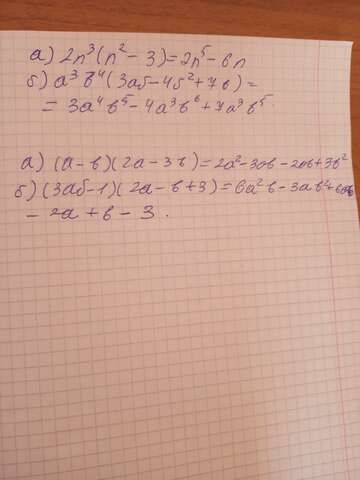 а) 2n³(n² − 3) = 2n⁵ − 6n
б) a³b⁴(3ab − 4b² + 7b) =
= 3a⁴b⁵ − 4a³b⁶ + 7a³b⁵
а) (a − b)(2a − 3b) = 2a² − 3ab − 2ab + 3b²
б) (3ab − 1)(2a − b + 3) = 6a²b − 3ab² +
− 2a + b − 3.